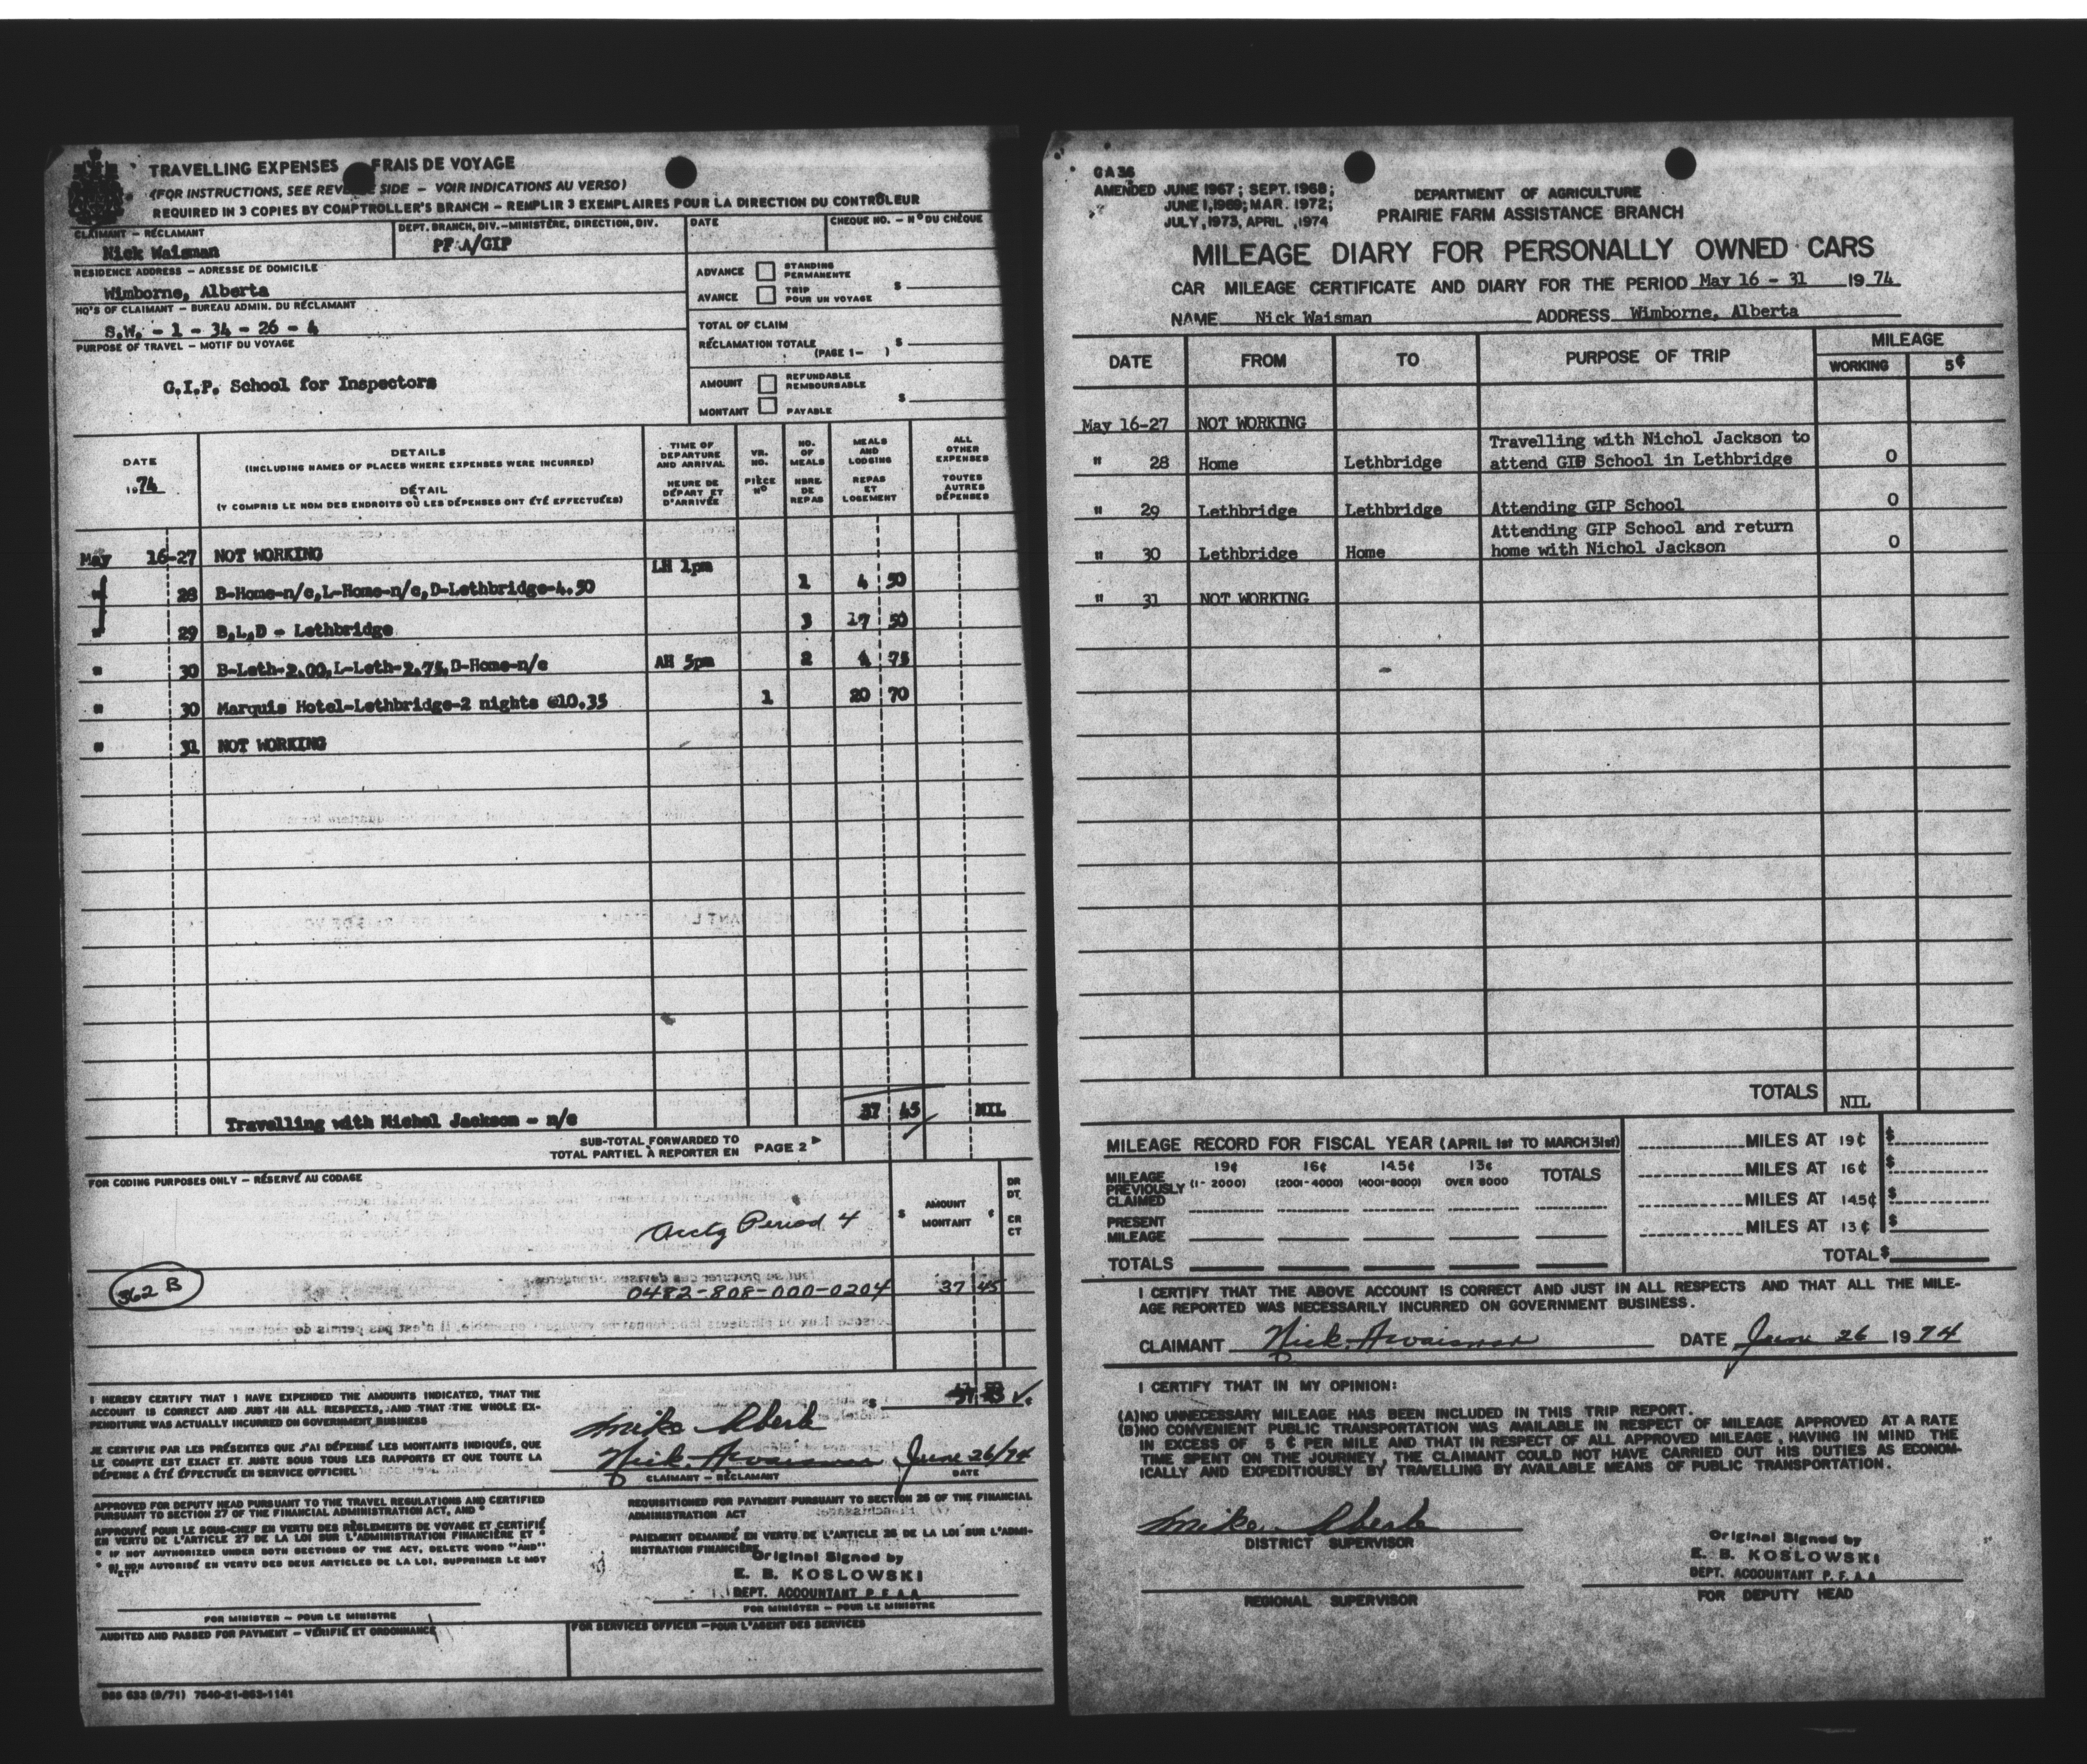 TRAVELLING EXPENSES FRAIS DE VOYAGE
(FOR INSTRUCTIONS, SEE REVERSE SIDE – VOIR INDICATIONS AU VERSO)
REQUIRED IN 3 COPIES BY COMPTROLLER'S BRANCH – REMPLIR 3 EXEMPLAIRES POUR LA DIRECTION DU CONTRÔLEUR
CLAIMANT – RÉCLAMANT DEPT. BRANCH, DIV.–MINISTÈRE, DIRECTION, DIV. DATE CHEQUE NO. – Nº DU CHÈQUE
Nick Waisman PFAA/GIP
RESIDENCE ADDRESS – ADRESSE DE DOMICILE
Wimborne, Alberta
HQ'S OF CLAIMANT – BUREAU ADMIN. DU RÉCLAMANT
S.W. - 1 - 34 - 26 - 4
PURPOSE OF TRAVEL – MOTIF DU VOYAGE
G.I.P. School for Inspectors
ADVANCE STANDING PERMANENTE
AVANCE TRIP POUR UN VOYAGE $
TOTAL OF CLAIM
RÉCLAMATION TOTALE (PAGE 1– ) $
AMOUNT REFUNDABLE REMBOURSABLE
MONTANT PAYABLE $
DATE 1974
DETAILS
(INCLUDING NAMES OF PLACES WHERE EXPENSES WERE INCURRED)
DÉTAIL
(Y COMPRIS LE NOM DES ENDROITS OÙ LES DÉPENSES ONT ÉTÉ EFFECTUÉES)
TIME OF DEPARTURE AND ARRIVAL
HEURE DE DÉPART ET D'ARRIVÉE
VR. NO. PIÈCE Nº
NO. OF MEALS NBRE DE REPAS
MEALS AND LODGING REPAS ET LOGEMENT
ALL OTHER EXPENSES TOUTES AUTRES DÉPENSES
May 16-27 NOT WORKING
" 28 B-Home-n/c,L-Home-n/c,D-Lethbridge-4.50 LH 1pm 1 4 50
" 29 B,L,D - Lethbridge 3 50
" 30 B-Leth-2.00,L-Leth-2.75,D-Home-n/c AH 5pm 2 4 75
" 30 Marquis Hotel-Lethbridge-2 nights @10.35 1 20 70
" 31 NOT WORKING
Travelling with Nichol Jackson - n/c 37 45 NIL
SUB-TOTAL FORWARDED TO
TOTAL PARTIEL À REPORTER EN PAGE 2
FOR CODING PURPOSES ONLY – RÉSERVÉ AU CODAGE
$ AMOUNT MONTANT ¢ DR DT. CR CT
Acctg Period 4
362 B 0482-808-000-0204 37 45
I HEREBY CERTIFY THAT I HAVE EXPENDED THE AMOUNTS INDICATED, THAT THE
ACCOUNT IS CORRECT AND JUST IN ALL RESPECTS, AND THAT THE WHOLE EX-
PENDITURE WAS ACTUALLY INCURRED ON GOVERNMENT BUSINESS
JE CERTIFIE PAR LES PRÉSENTES QUE J'AI DÉPENSÉ LES MONTANTS INDIQUÉS, QUE
LE COMPTE EST EXACT ET JUSTE SOUS TOUS LES RAPPORTS ET QUE TOUTE LA
DÉPENSE A ÉTÉ EFFECTUÉE EN SERVICE OFFICIEL
$
Mike
Nick June 26/74
CLAIMANT – RÉCLAMANT DATE
APPROVED FOR DEPUTY HEAD PURSUANT TO THE TRAVEL REGULATIONS AND CERTIFIED
PURSUANT TO SECTION 27 OF THE FINANCIAL ADMINISTRATION ACT, AND *
APPROUVÉ POUR LE SOUS-CHEF EN VERTU DES RÈGLEMENTS DE VOYAGE ET CERTIFIÉ
EN VERTU DE L'ARTICLE 27 DE LA LOI SUR L'ADMINISTRATION FINANCIÈRE ET *
* IF NOT AUTHORIZED UNDER BOTH SECTIONS OF THE ACT, DELETE WORD "AND"
* SI NON AUTORISÉ EN VERTU DES DEUX ARTICLES DE LA LOI, SUPPRIMER LE MOT "ET"
FOR MINISTER – POUR LE MINISTRE
REQUISITIONED FOR PAYMENT PURSUANT TO SECTION 26 OF THE FINANCIAL
ADMINISTRATION ACT
PAIEMENT DEMANDÉ EN VERTU DE L'ARTICLE 26 DE LA LOI SUR L'ADMI-
NISTRATION FINANCIÈRE
Original Signed by
E. B. KOSLOWSKI
DEPT. ACCOUNTANT P.F.A.A.
FOR MINISTER – POUR LE MINISTRE
AUDITED AND PASSED FOR PAYMENT – VÉRIFIÉ ET ORDONNANCÉ
FOR SERVICES OFFICER – POUR L'AGENT DES SERVICES
DSS 633 (9/71) 7540-21-863-1141
GA 36
AMENDED JUNE 1967; SEPT. 1968;
JUNE 1, 1969; MAR. 1972;
JULY, 1973, APRIL, 1974
DEPARTMENT OF AGRICULTURE
PRAIRIE FARM ASSISTANCE BRANCH
MILEAGE DIARY FOR PERSONALLY OWNED CARS
CAR MILEAGE CERTIFICATE AND DIARY FOR THE PERIOD May 16 - 31 1974
NAME Nick Waisman ADDRESS Wimborne, Alberta
DATE FROM TO PURPOSE OF TRIP MILEAGE
WORKING 5¢
May 16-27 NOT WORKING
Travelling with Nichol Jackson to
" 28 Home Lethbridge attend GIP School in Lethbridge 0
" 29 Lethbridge Lethbridge Attending GIP School 0
Attending GIP School and return
" 30 Lethbridge Home home with Nichol Jackson 0
" 31 NOT WORKING
TOTALS NIL
MILEAGE RECORD FOR FISCAL YEAR (APRIL 1st TO MARCH 31st)
19¢ 16¢ 14.5¢ 13¢ TOTALS
MILEAGE PREVIOUSLY CLAIMED (1-2000) (2001-4000) (4001-8000) OVER 8000
PRESENT MILEAGE
TOTALS
MILES AT 19¢ $
MILES AT 16¢ $
MILES AT 14.5¢ $
MILES AT 13¢ $
TOTAL $
I CERTIFY THAT THE ABOVE ACCOUNT IS CORRECT AND JUST IN ALL RESPECTS AND THAT ALL THE MILE-
AGE REPORTED WAS NECESSARILY INCURRED ON GOVERNMENT BUSINESS.
CLAIMANT Nick DATE June 26 1974
I CERTIFY THAT IN MY OPINION:
(A) NO UNNECESSARY MILEAGE HAS BEEN INCLUDED IN THIS TRIP REPORT.
(B) NO CONVENIENT PUBLIC TRANSPORTATION WAS AVAILABLE IN RESPECT OF MILEAGE APPROVED AT A RATE
IN EXCESS OF 5 ¢ PER MILE AND THAT IN RESPECT OF ALL APPROVED MILEAGE, HAVING IN MIND THE
TIME SPENT ON THE JOURNEY, THE CLAIMANT COULD NOT HAVE CARRIED OUT HIS DUTIES AS ECONOM-
ICALLY AND EXPEDITIOUSLY BY TRAVELLING BY AVAILABLE MEANS OF PUBLIC TRANSPORTATION.
Mike
DISTRICT SUPERVISOR
REGIONAL SUPERVISOR
Original Signed by
E. B. KOSLOWSKI
DEPT. ACCOUNTANT P.F.A.A.
FOR DEPUTY HEAD